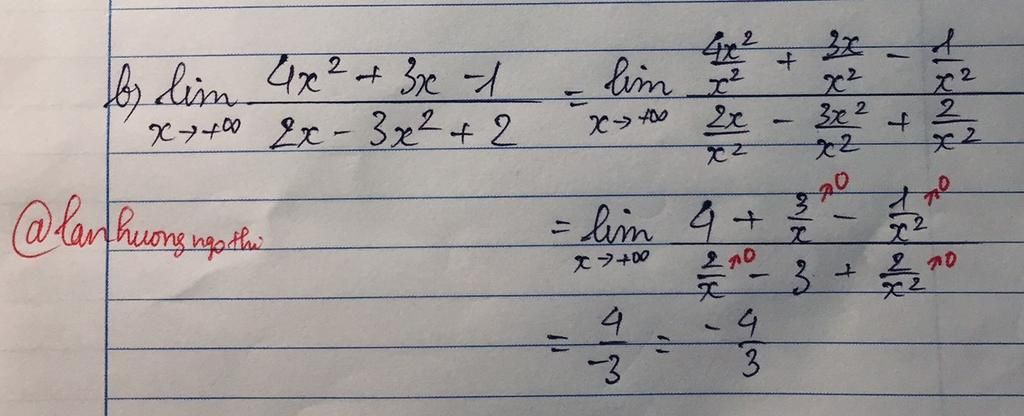 b) lim x→+∞ (4x² + 3x - 1)/(2x - 3x² + 2) = lim x→+∞ (4x²/x² + 3x/x² - 1/x²)/(2x/x² - 3x²/x² + 2/x²)
@lanhuongngothi = lim x→+∞ (4 + 3/x →0 - 1/x² →0)/(2/x →0 - 3 + 2/x² →0)
= 4/-3 = -4/3